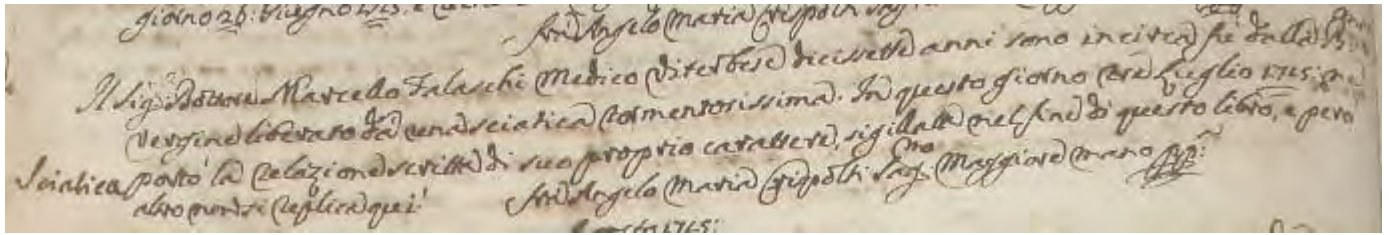 giorno 26: Giugno 1715:
fra Angelo Maria Crispolti Sag
Il Sig.r Dottore Marcello Falaschi Medico Viterbese diecissette anni sono incirca fù dalla B.
Vergine liberato dà una sciatica tormentosissima. In questo giorno tre Luglio 1715: ne
Sciatica portò la relazione scritta di suo proprio carattere, sigillata nel fine di questo libro, e però
altro non si replica qui!
fra Angelo Maria Crispolti Sag.no Maggiore mano pp.a:
1715: